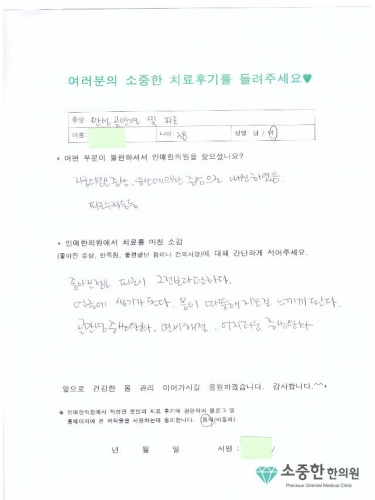 여러분의 소중한 치료후기를 들려주세요♥
증상: 만성골반염 및 피로
이름: 나이: 성별: 남 / 여
* 어떤 부분이 불편하셔서 인애한의원을 찾으셨나요?
증상으로 내원하였음.
* 인애한의원에서 치료를 마친 소감
(좋아진 증상, 만족점, 불편했던 점이나 건의사항)에 대해 간단하게 적어주세요.
좋아진점은 피로가 그전보다 덜하다.
얼굴에 생기가 돈다. 몸이 따뜻해지는걸 느끼게 된다.
골반염증상완화, 변비해결, 어지러운 증상완화
앞으로 건강한 몸 관리 이어가시길 응원하겠습니다. 감사합니다.^^*
* 인애한의원에서 작성한 본인의 치료 후기에 관련하여 블로그 및
홈페이지에 본 저작물을 사용하는데 동의합니다. (동의/비동의)
년 월 일 서명:
소중한 한의원
Precious Oriental Medical Clinic